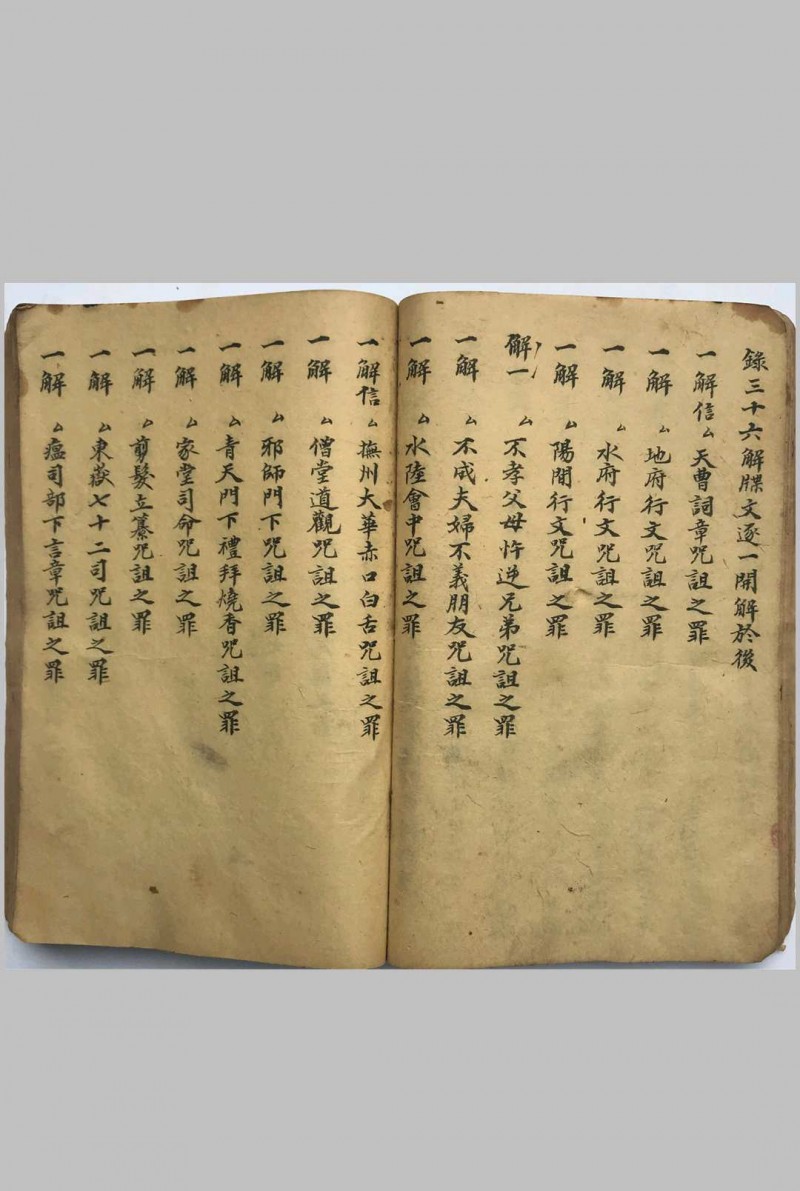 錄三十六解牒文逐一開解於後
一解信厶天曹詞章咒詛之罪
一解 厶地府行文咒詛之罪
一解 厶水府行文咒詛之罪
一解 厶陽間行文咒詛之罪
解一 厶不孝父母忤逆兄弟咒詛之罪
一解 厶不成夫婦不義朋友咒詛之罪
一解 厶水陸會中咒詛之罪
一解信厶撫州大華赤口白舌咒詛之罪
一解 厶僧堂道觀咒詛之罪
一解 厶邪師門下咒詛之罪
一解 厶青天門下禮拜燒香咒詛之罪
一解 厶家堂司命咒詛之罪
一解 厶剪髮立纂咒詛之罪
一解 厶東嶽七十二司咒詛之罪
一解 厶瘟司部下言章咒詛之罪